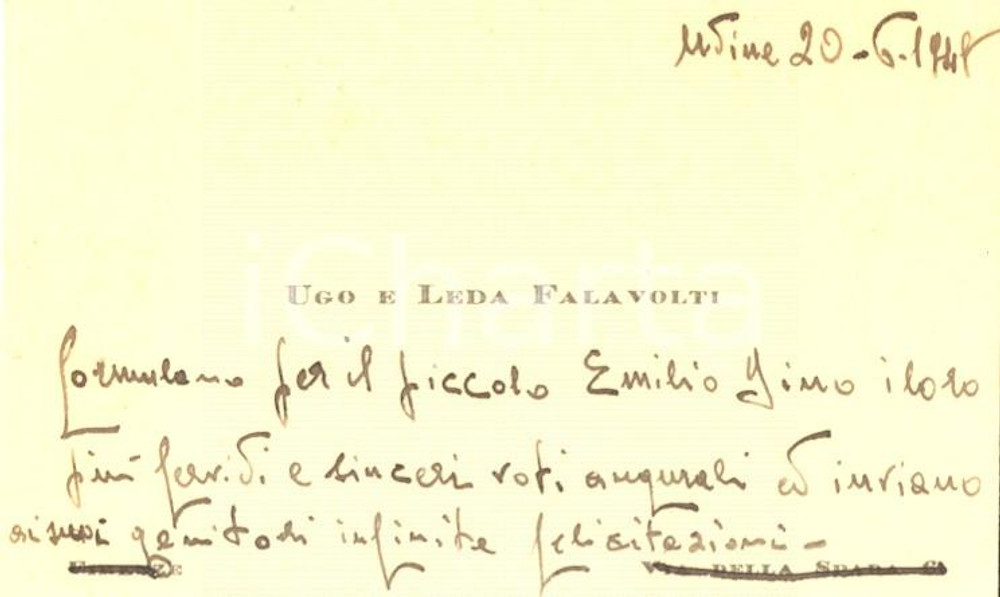 Udine 20-6-1941
iCharta
UGO E LEDA FALAVOLTI
formulano per il piccolo Emilio Gino i loro
più fervidi e sinceri voti augurali ed inviano
ai suoi genitori infinite felicitazioni -
FIRENZE VIA DELLA SPADA